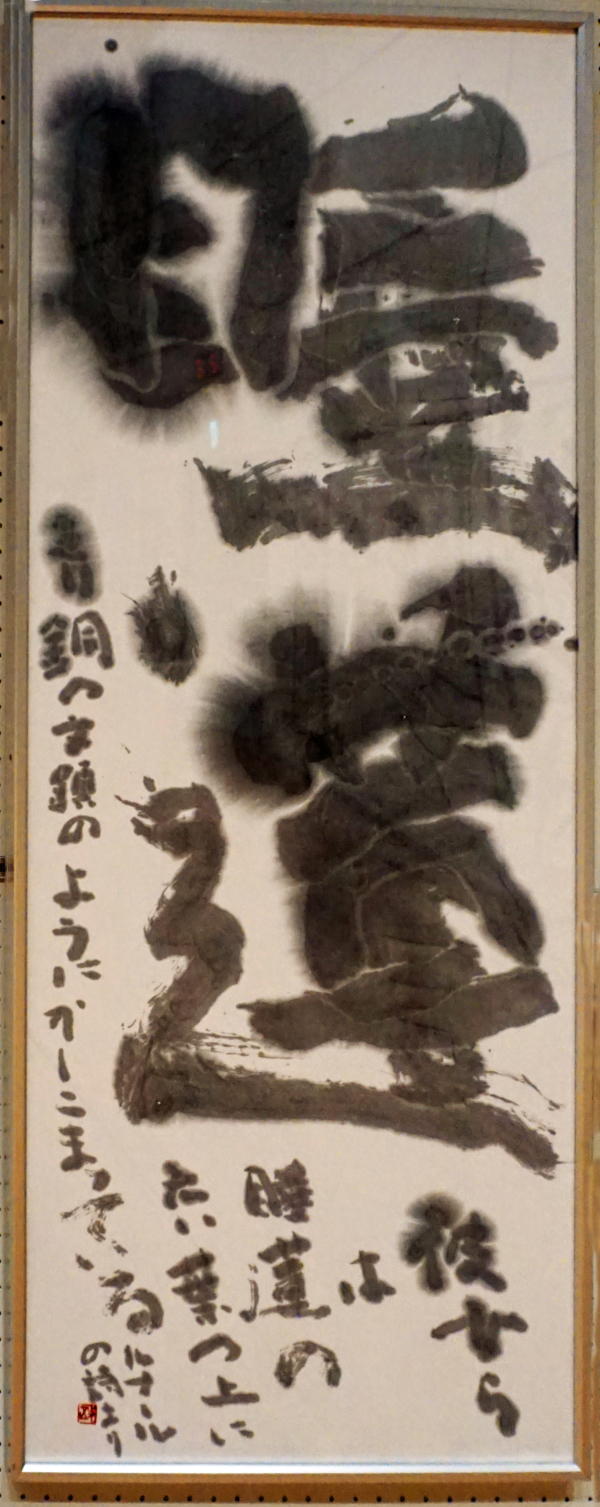 睡蓮
彼女ら
は
睡蓮の
広い葉の上に
青銅の文鎮のようにかしこまっている
ルナール
の詩より